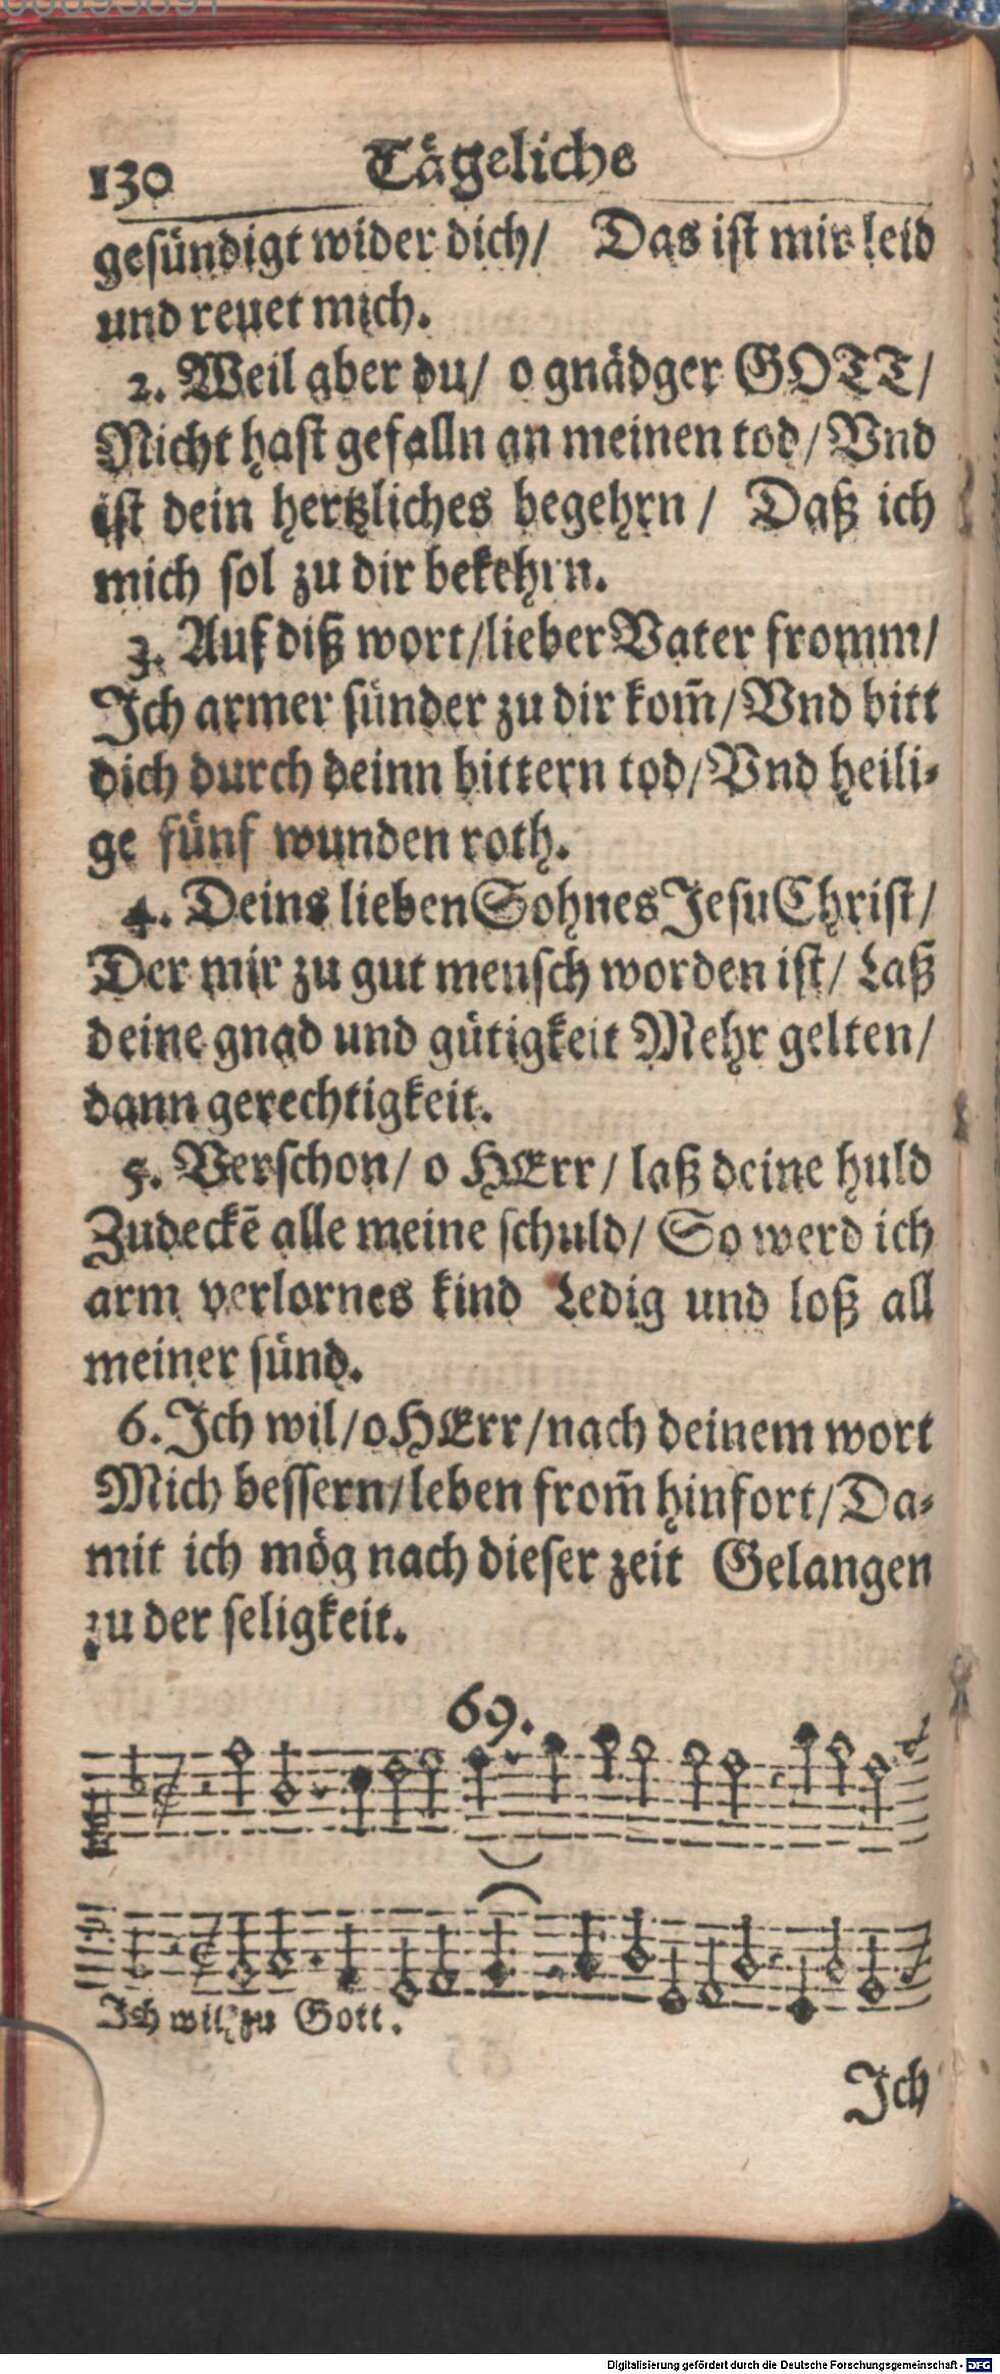 130 Tägeliche
gesündigt wider dich/ Das ist mir leid
und reuet mich.
2. Weil aber du/ o gnädger GOTT/
Nicht hast gefalln an meinen tod/ Vnd
ist dein hertzliches begehrn/ Daß ich
mich sol zu dir bekehrn.
3. Auf diß wort/lieber Vater fromm/
Ich armer sünder zu dir kom̃/ Vnd bitt
dich durch deinn bittern tod/ Vnd heili⸗
ge fünf wunden roth.
4. Deins lieben Sohnes Jesu Christ/
Der mir zu gut mensch worden ist/ Laß
deine gnad und gütigkeit Mehr gelten/
dann gerechtigkeit.
5. Verschon/ o HErr/ laß deine huld
Zudeckẽ alle meine schuld/ So werd ich
arm verlornes kind Ledig und loß all
meiner sünd.
6. Ich wil/o HErr/nach deinem wort
Mich bessern/leben from̃ hinfort/Da⸗
mit ich mög nach dieser zeit Gelangen
zu der seligkeit.
69.
Ich wil zu Gott.
Ich
Digitalisierung gefördert durch die Deutsche Forschungsgemeinschaft - DFG